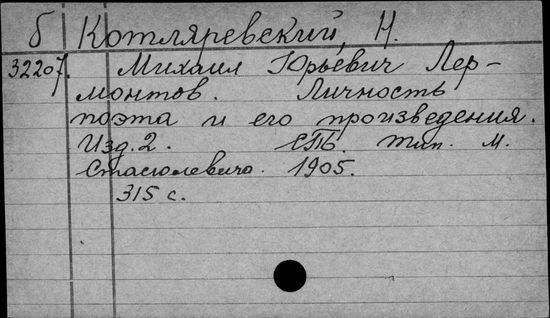 б Котляревский, Н.
32207. Михаил Юрьевич Лер-
монтов. Личность
поэта и его произведения.
Изд. 2. СПБ. тип. М.
Стасюлевича. 1905.
315 с.